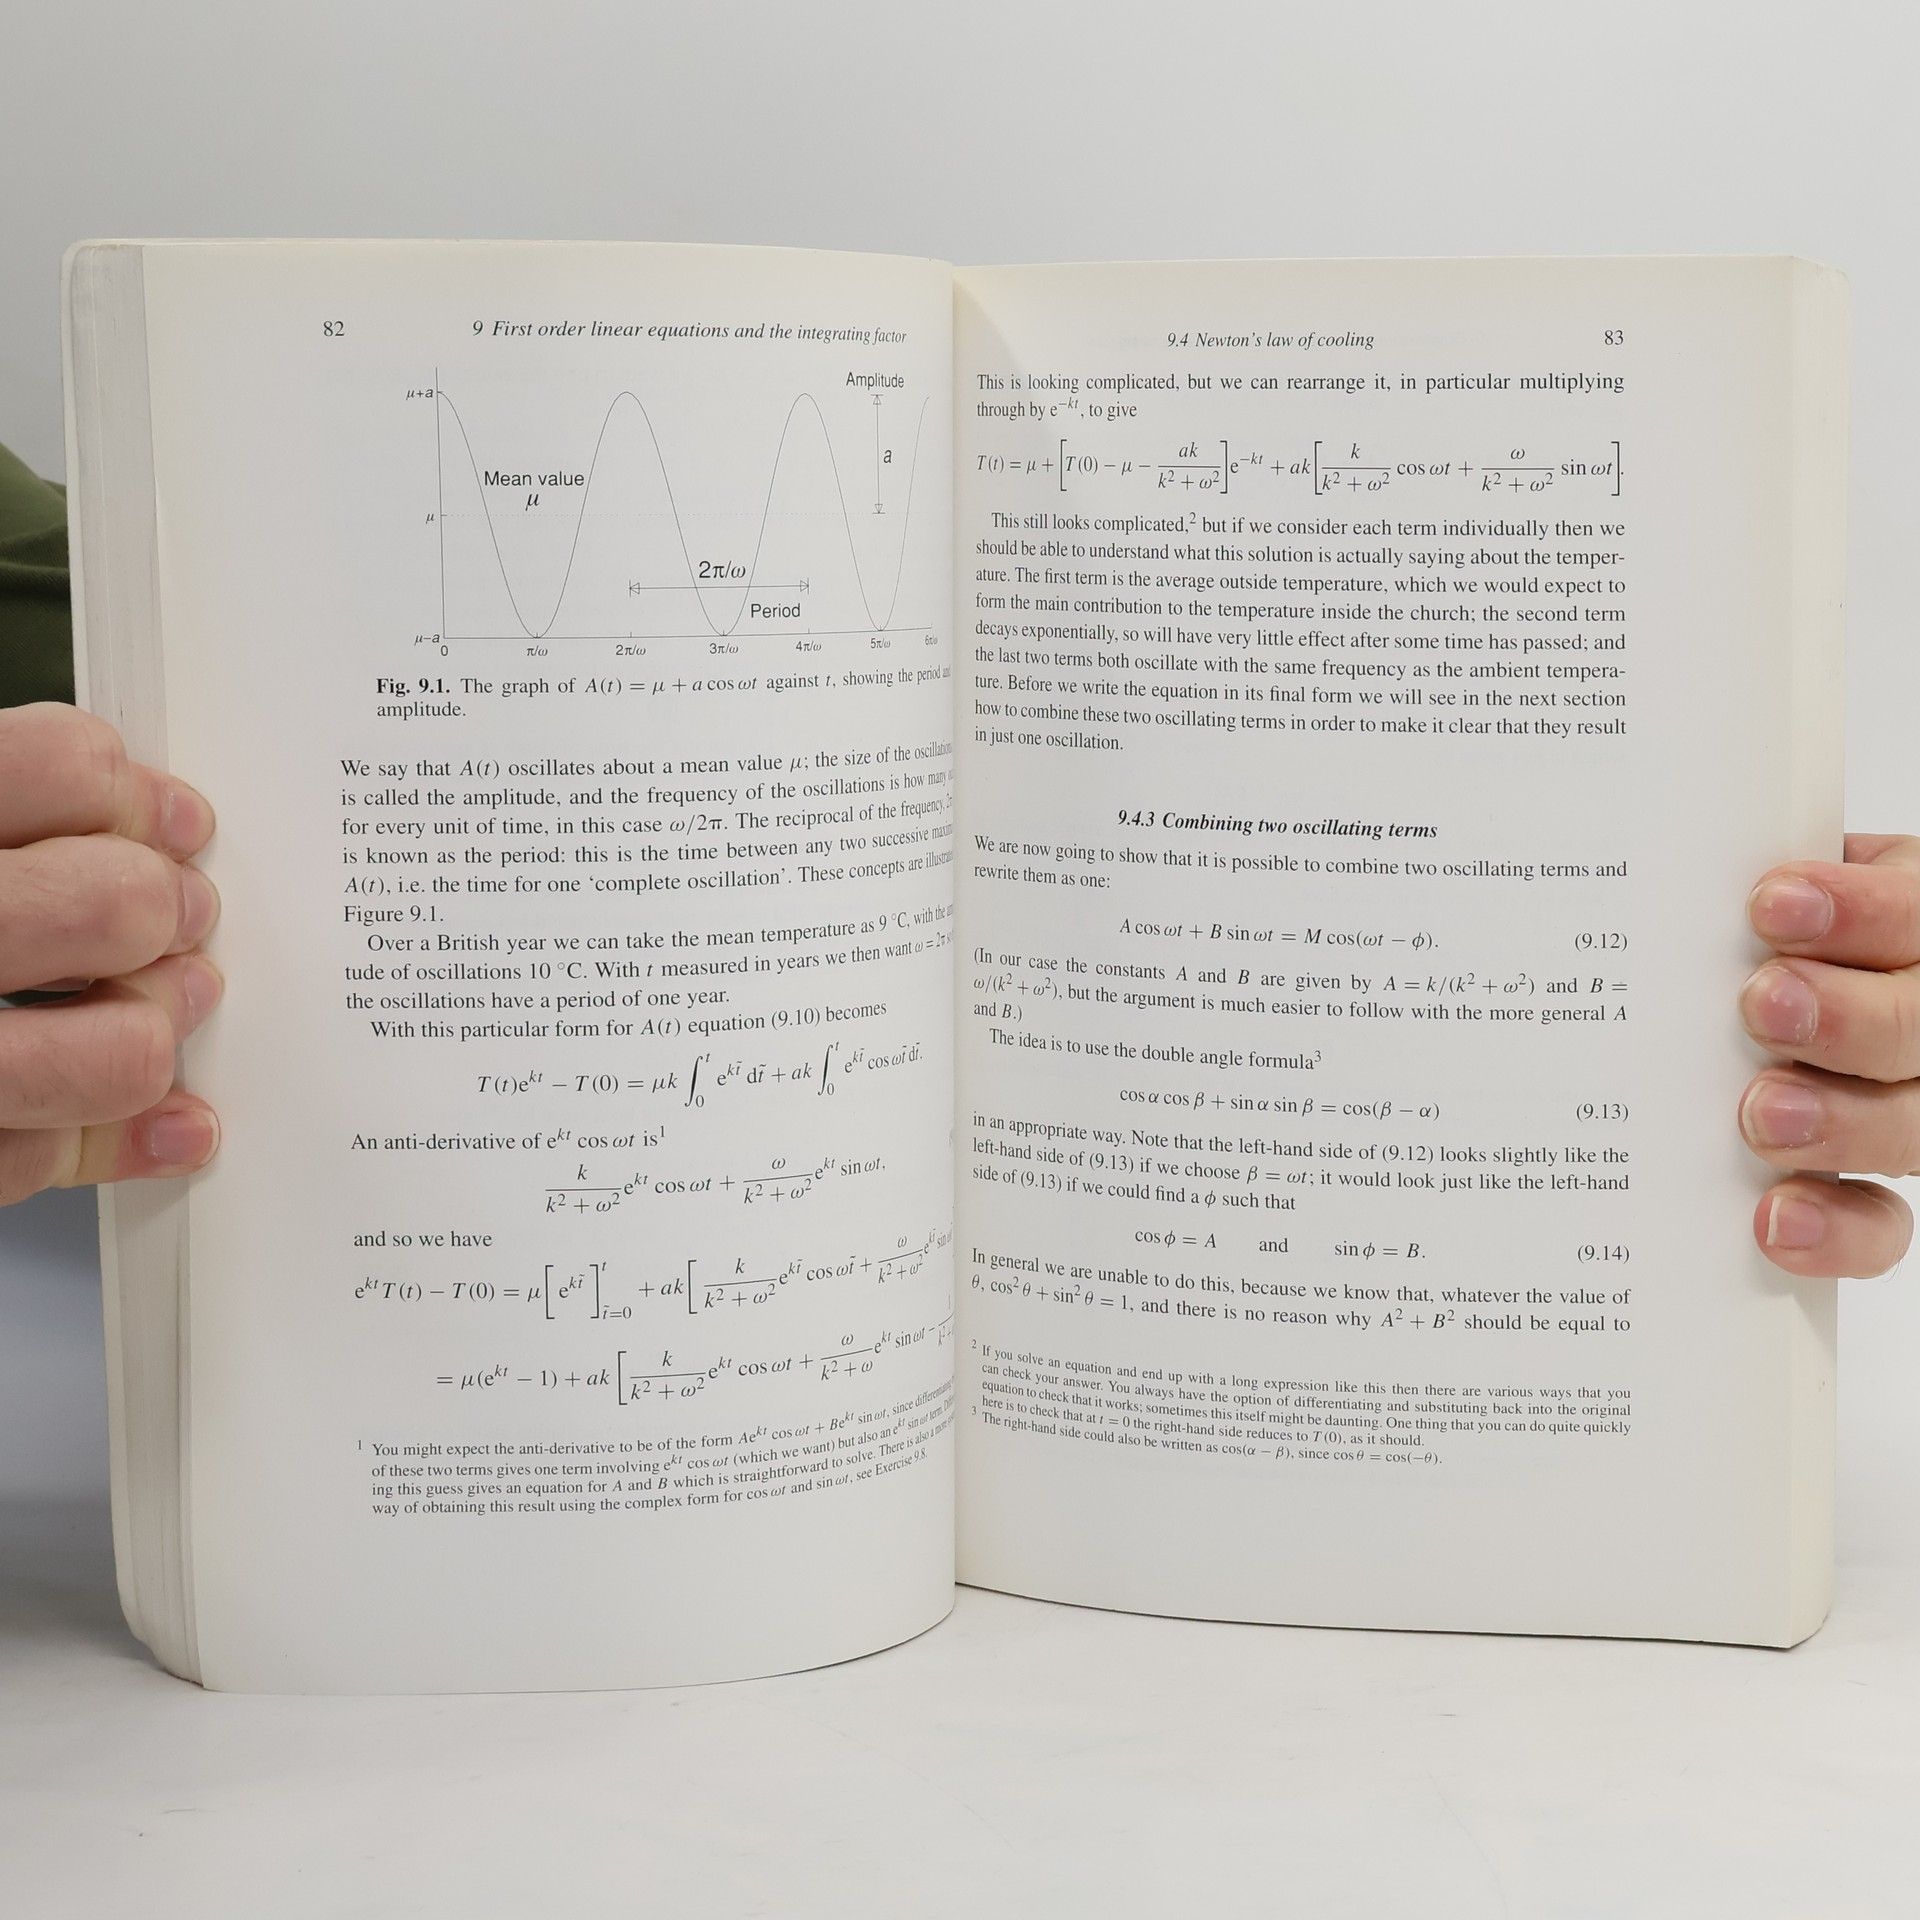 82
9 First order linear equations and the integrating factor
Amplitude
μ+a
a
Mean value
μ
μ
2π/ω
Period
μ−a
0 π/ω 2π/ω 3π/ω 4π/ω 5π/ω 6π/ω
Fig. 9.1. The graph of A(t) = μ + a cos ωt against t, showing the period
amplitude.
We say that A(t) oscillates about a mean value μ; the size of the
is called the amplitude, and the frequency of the oscillations is how many
for every unit of time, in this case ω/2π. The reciprocal of the frequency,
is known as the period: this is the time between any two successive
A(t), i.e. the time for one ‘complete oscillation’. These concepts are
Figure 9.1.
Over a British year we can take the mean temperature as 9 °C, with the
tude of oscillations 10 °C. With t measured in years we then want ω = 2π
the oscillations have a period of one year.
With this particular form for A(t) equation (9.10) becomes
T(t)e^{kt} − T(0) = μk ∫_0^t e^{kt̃} dt̃ + ak ∫_0^t e^{kt̃} cos ωt̃ dt̃.
An anti-derivative of e^{kt} cos ωt is¹
k/(k² + ω²) e^{kt} cos ωt + ω/(k² + ω²) e^{kt} sin ωt,
and so we have
e^{kt} T(t) − T(0) = μ[e^{kt̃}]_{t̃=0}^t + ak[k/(k² + ω²) e^{kt̃} cos ωt̃ + ω/(k² + ω²) e^{kt̃}
= μ(e^{kt} − 1) + ak[k/(k² + ω²) e^{kt} cos ωt + ω/(k² + ω) e^{kt} sin ωt −
¹ You might expect the anti-derivative to be of the form Ae^{kt} cos ωt + Be^{kt} sin ωt, since
of these two terms gives one term involving e^{kt} cos ωt (which we want) but also an e^{kt} sin ωt term.
ing this guess gives an equation for A and B which is straightforward to solve. There is also a
way of obtaining this result using the complex form for cos ωt and sin ωt, see Exercise 9.8.
9.4 Newton’s law of cooling
83
This is looking complicated, but we can rearrange it, in particular multiplying
through by e^{−kt}, to give
T(t) = μ + [T(0) − μ − ak/(k² + ω²)] e^{−kt} + ak[k/(k² + ω²) cos ωt + ω/(k² + ω²) sin ωt].
This still looks complicated,² but if we consider each term individually then we
should be able to understand what this solution is actually saying about the temper-
ature. The first term is the average outside temperature, which we would expect to
form the main contribution to the temperature inside the church; the second term
decays exponentially, so will have very little effect after some time has passed; and
the last two terms both oscillate with the same frequency as the ambient tempera-
ture. Before we write the equation in its final form we will see in the next section
how to combine these two oscillating terms in order to make it clear that they result
in just one oscillation.
9.4.3 Combining two oscillating terms
We are now going to show that it is possible to combine two oscillating terms and
rewrite them as one:
A cos ωt + B sin ωt = M cos(ωt − ϕ). (9.12)
(In our case the constants A and B are given by A = k/(k² + ω²) and B =
ω/(k² + ω²), but the argument is much easier to follow with the more general A
and B.)
The idea is to use the double angle formula³
cos α cos β + sin α sin β = cos(β − α) (9.13)
in an appropriate way. Note that the left-hand side of (9.12) looks slightly like the
left-hand side of (9.13) if we choose β = ωt; it would look just like the left-hand
side of (9.13) if we could find a ϕ such that
cos ϕ = A and sin ϕ = B. (9.14)
In general we are unable to do this, because we know that, whatever the value of
θ, cos² θ + sin² θ = 1, and there is no reason why A² + B² should be equal to
² If you solve an equation and end up with a long expression like this then there are various ways that you
can check your answer. You always have the option of differentiating and substituting back into the original
equation to check that it works; sometimes this itself might be daunting. One thing that you can do quite quickly
here is to check that at t = 0 the right-hand side reduces to T(0), as it should.
³ The right-hand side could also be written as cos(α − β), since cos θ = cos(−θ).